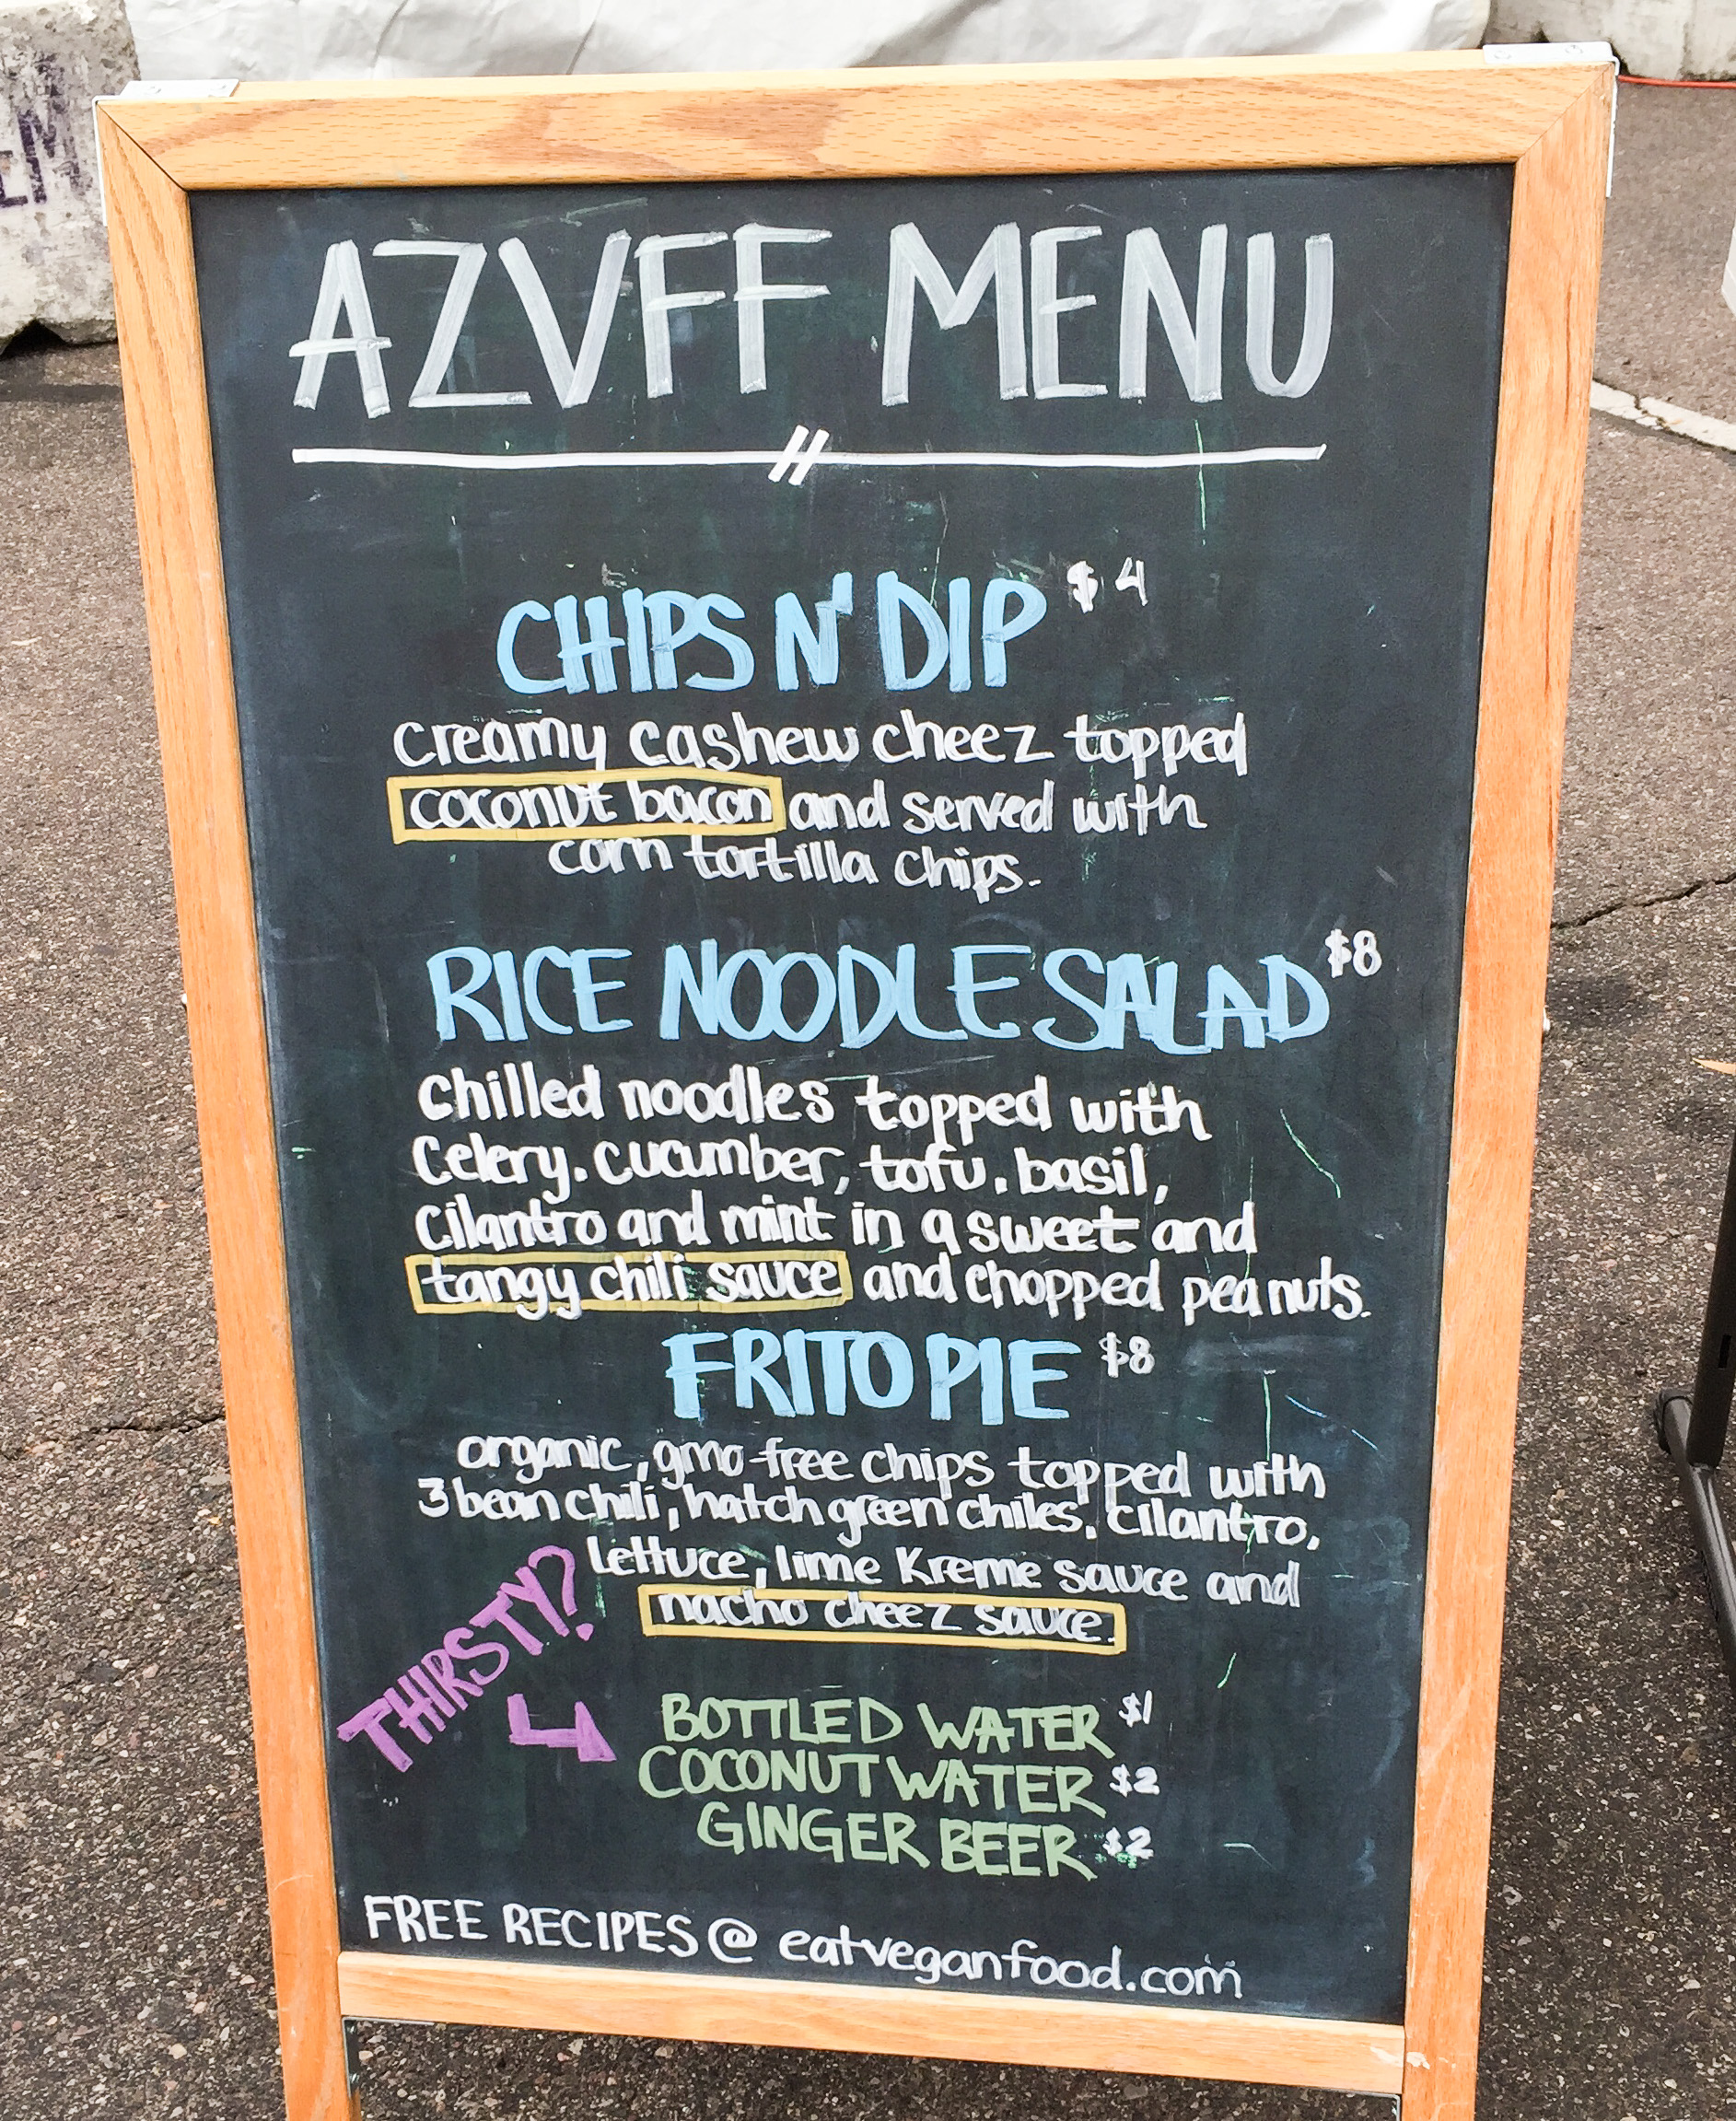 AZVFF MENU
CHIPS N' DIP $4
creamy cashew cheez topped
coconut bacon and served with
corn tortilla chips.
RICE NOODLE SALAD $8
Chilled noodles topped with
Celery. cucumber, tofu. basil,
Cilantro and mint in a sweet and
tangy chili sauce and chopped peanuts.
FRITO PIE $8
organic, gmo-free chips topped with
3 bean chili, hatch green chiles. cilantro,
Lettuce, lime Kreme sauce and
nacho cheez sauce.
THIRSTY?
BOTTLED WATER $1
COCONUT WATER $2
GINGER BEER $2
FREE RECIPES @ eatveganfood.com